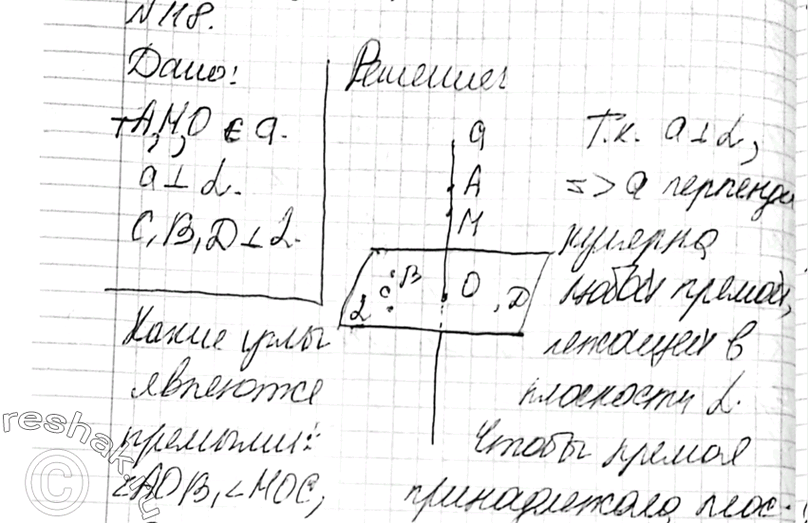 N 118.
Дано:
A, M, O ∈ a.
a ⊥ α.
C, B, D ⊥ α.
Какие углы
являются
прямыми:
∠AOB, ∠MOC,
Решение:
a
A
M
B
C
O
D
α
Т.к. a ⊥ α,
=> a перпенди
кулярна
любой прямой,
лежащей в
плоскости α.
Чтобы прямая
принадлежала плос-
reshak
©